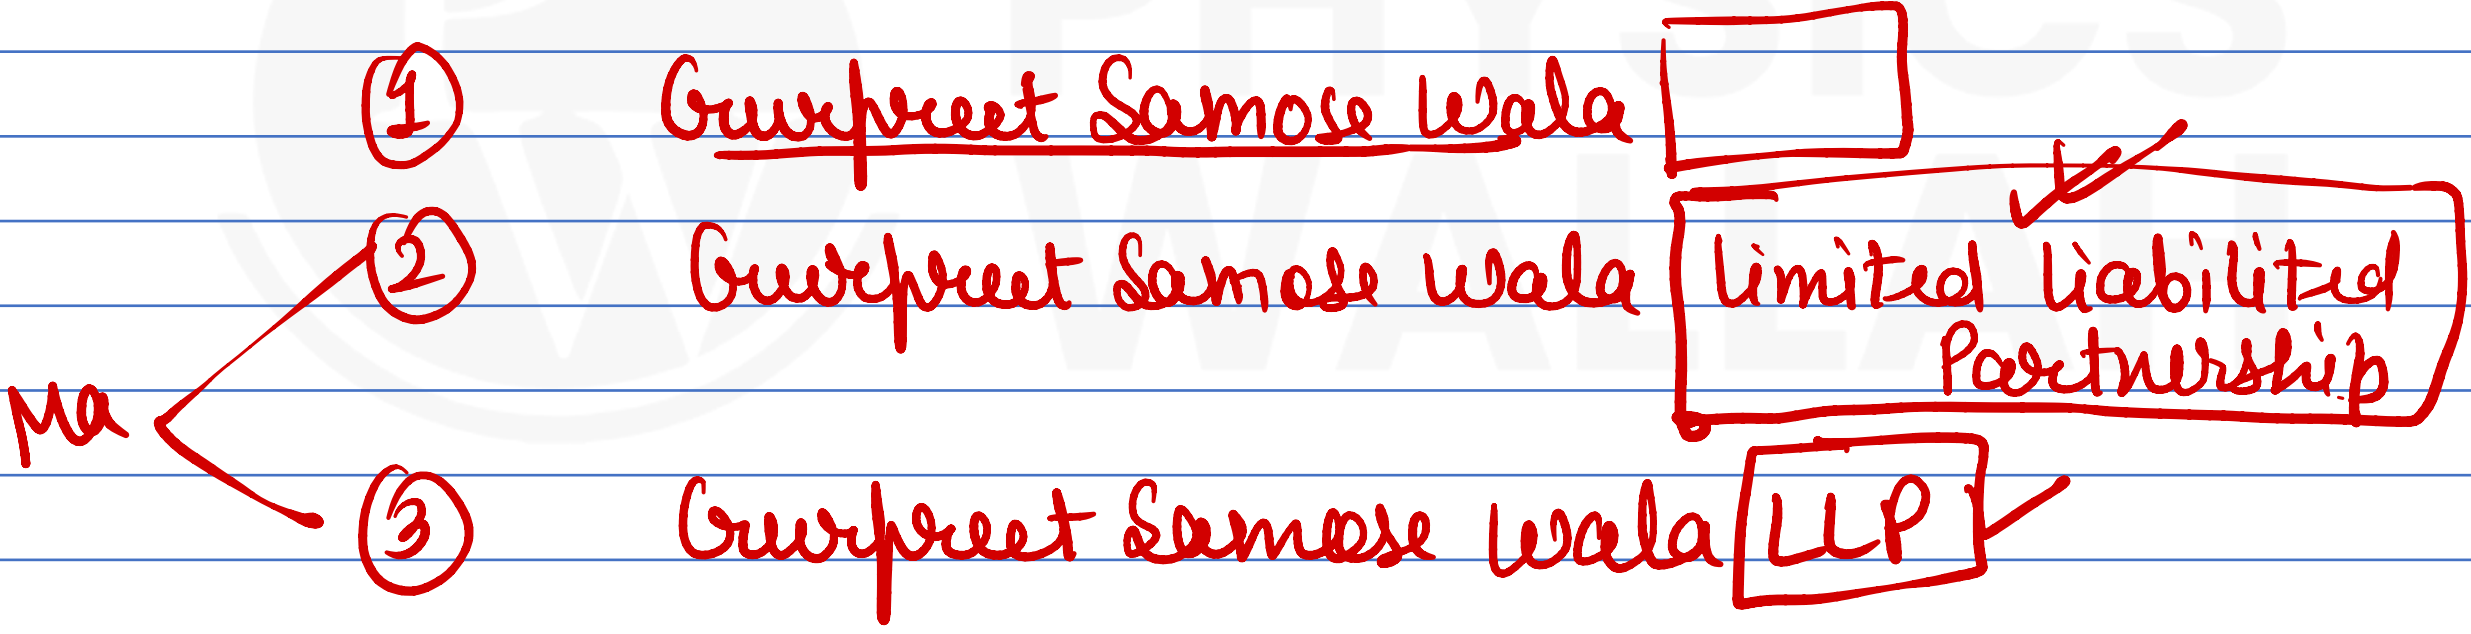 PHYSICS
WALLAH
1 Gurpreet Samose Wala
2 Gurpreet Samose Wala Limited Liabilitied
Partnership
Ma
3 Gurpreet Samose Wala LLP